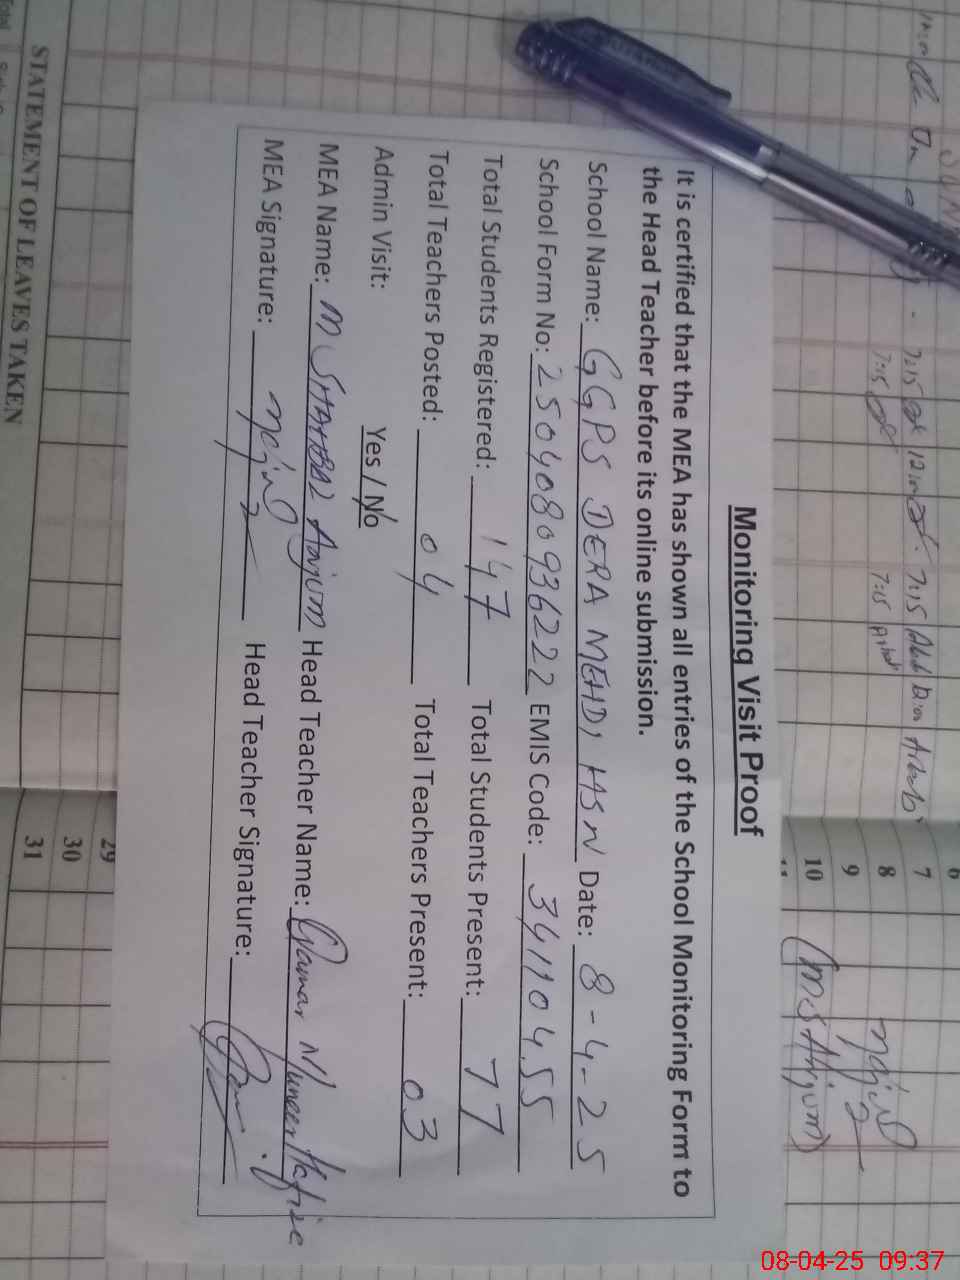 Monitoring Visit Proof
It is certified that the MEA has shown all entries of the School Monitoring Form to
the Head Teacher before its online submission.
School Name: GGPS DERA MEHDI HSN Date: 8-4-25
School Form No: 2504080936222 EMIS Code: 34110455
Total Students Registered: 147 Total Students Present: 77
Total Teachers Posted: 04 Total Teachers Present: 03
Admin Visit: Yes / No
MEA Name: M SHAHBAZ Anjum Head Teacher Name: Qamar Muneer Hafsie
MEA Signature: Head Teacher Signature:
STATEMENT OF LEAVES TAKEN
7:15
7:15
7:15
7:15
6
7
8
9
10
11
(M S Anjum)
29
30
31
08-04-25 09:37